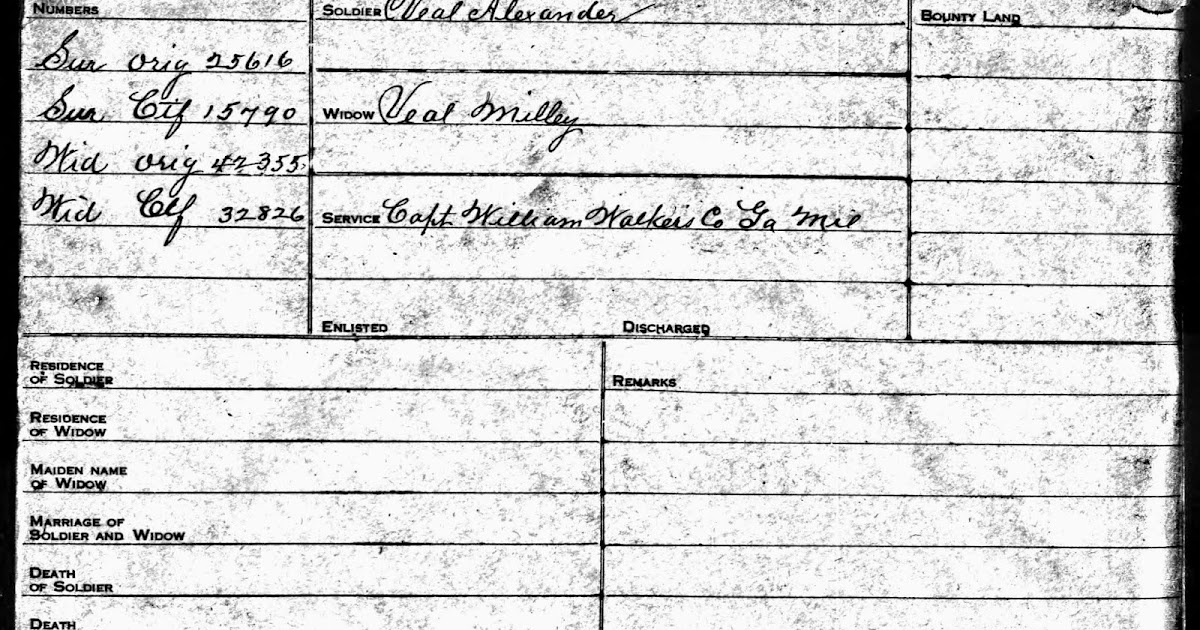 NUMBERS
Sur orig 25616
Sur Ctf 15790
Wid orig 42355
Wid Ctf 32826
SOLDIER Veal Alexander
WIDOW Veal Milley
SERVICE Capt William Walkers Co Ga Mil
ENLISTED DISCHARGED
BOUNTY LAND
RESIDENCE
OF SOLDIER
RESIDENCE
OF WIDOW
MAIDEN NAME
OF WIDOW
MARRIAGE OF
SOLDIER AND WIDOW
DEATH
OF SOLDIER
DEATH
REMARKS